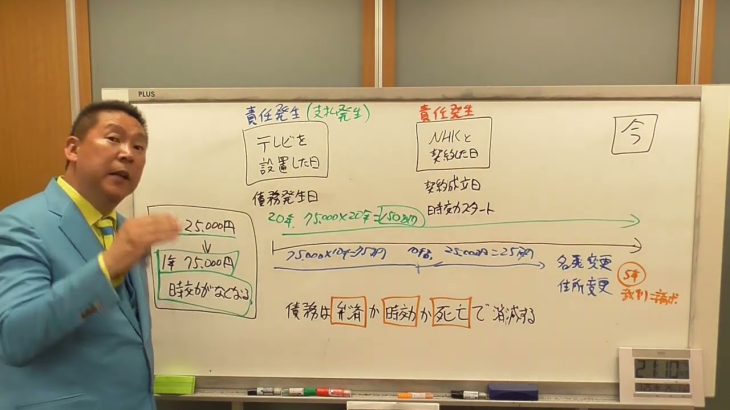 PLUS
責任発生(支払発生)
テレビを
設置した日
債務発生日
責任発生
NHKと
契約した日
契約成立日
時効スタート
今
25.000円
↓
1年 75.000円
時効がなくなる
20年 75.000×20年=150万円
75.000×10年=75万円
25.000円 = 25万円
名義変更
住所変更
5年
裁判 請求
債務は弁済か時効か死亡で消滅する